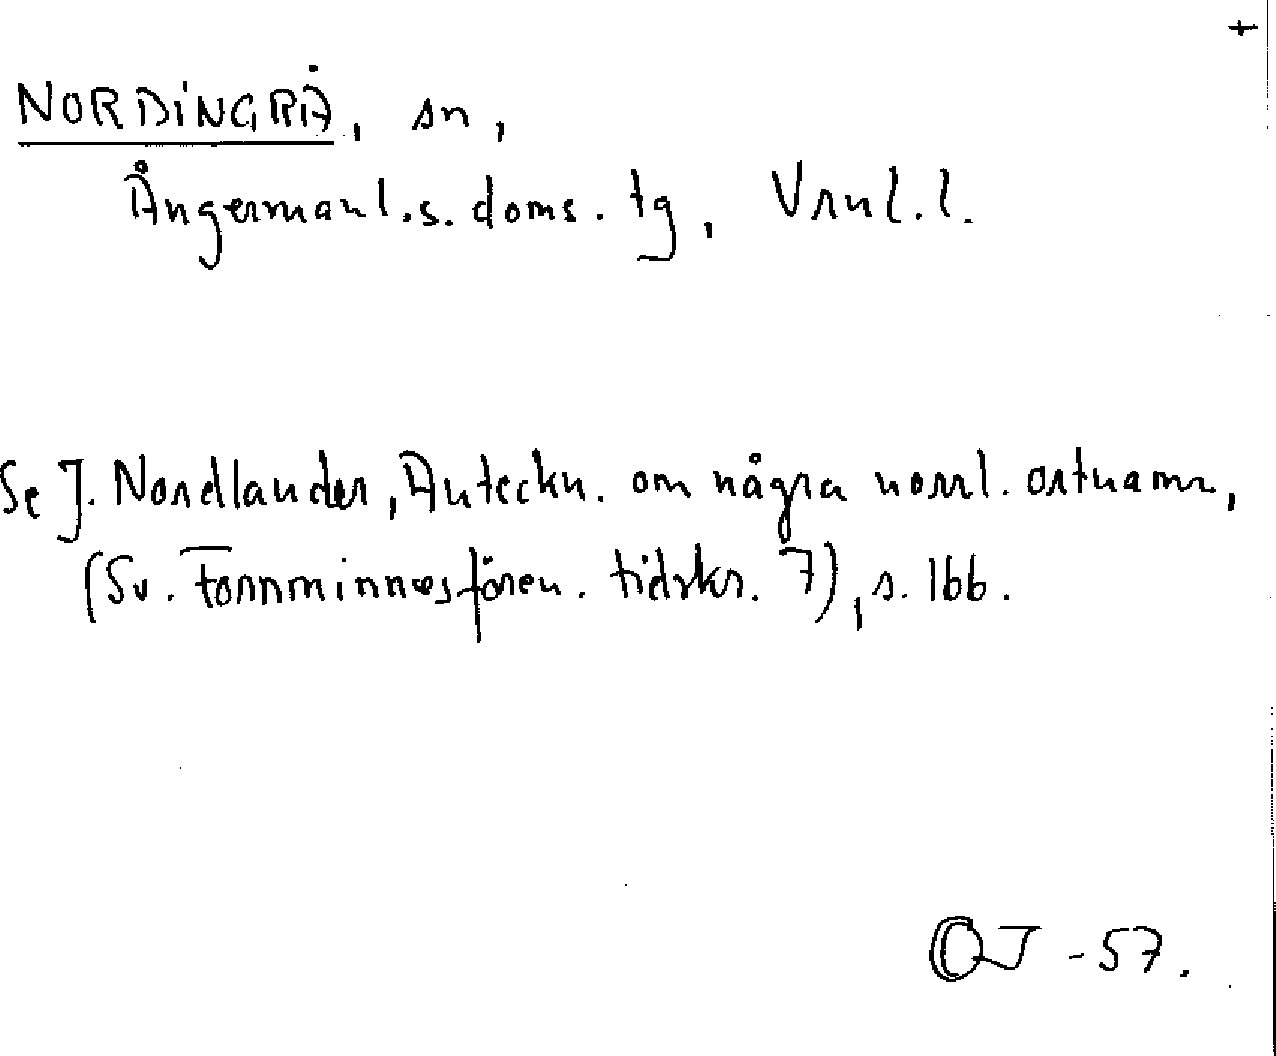 +
NORDINGRÅ, sn,
Ångermanl.s. doms. tg, Vrnl. l.
Se J. Nordlander, Anteckn. om några norrl. ortnamn,
(Sv. Fornminnesfören. tidskr. 7), s. 166.
OJ -57.